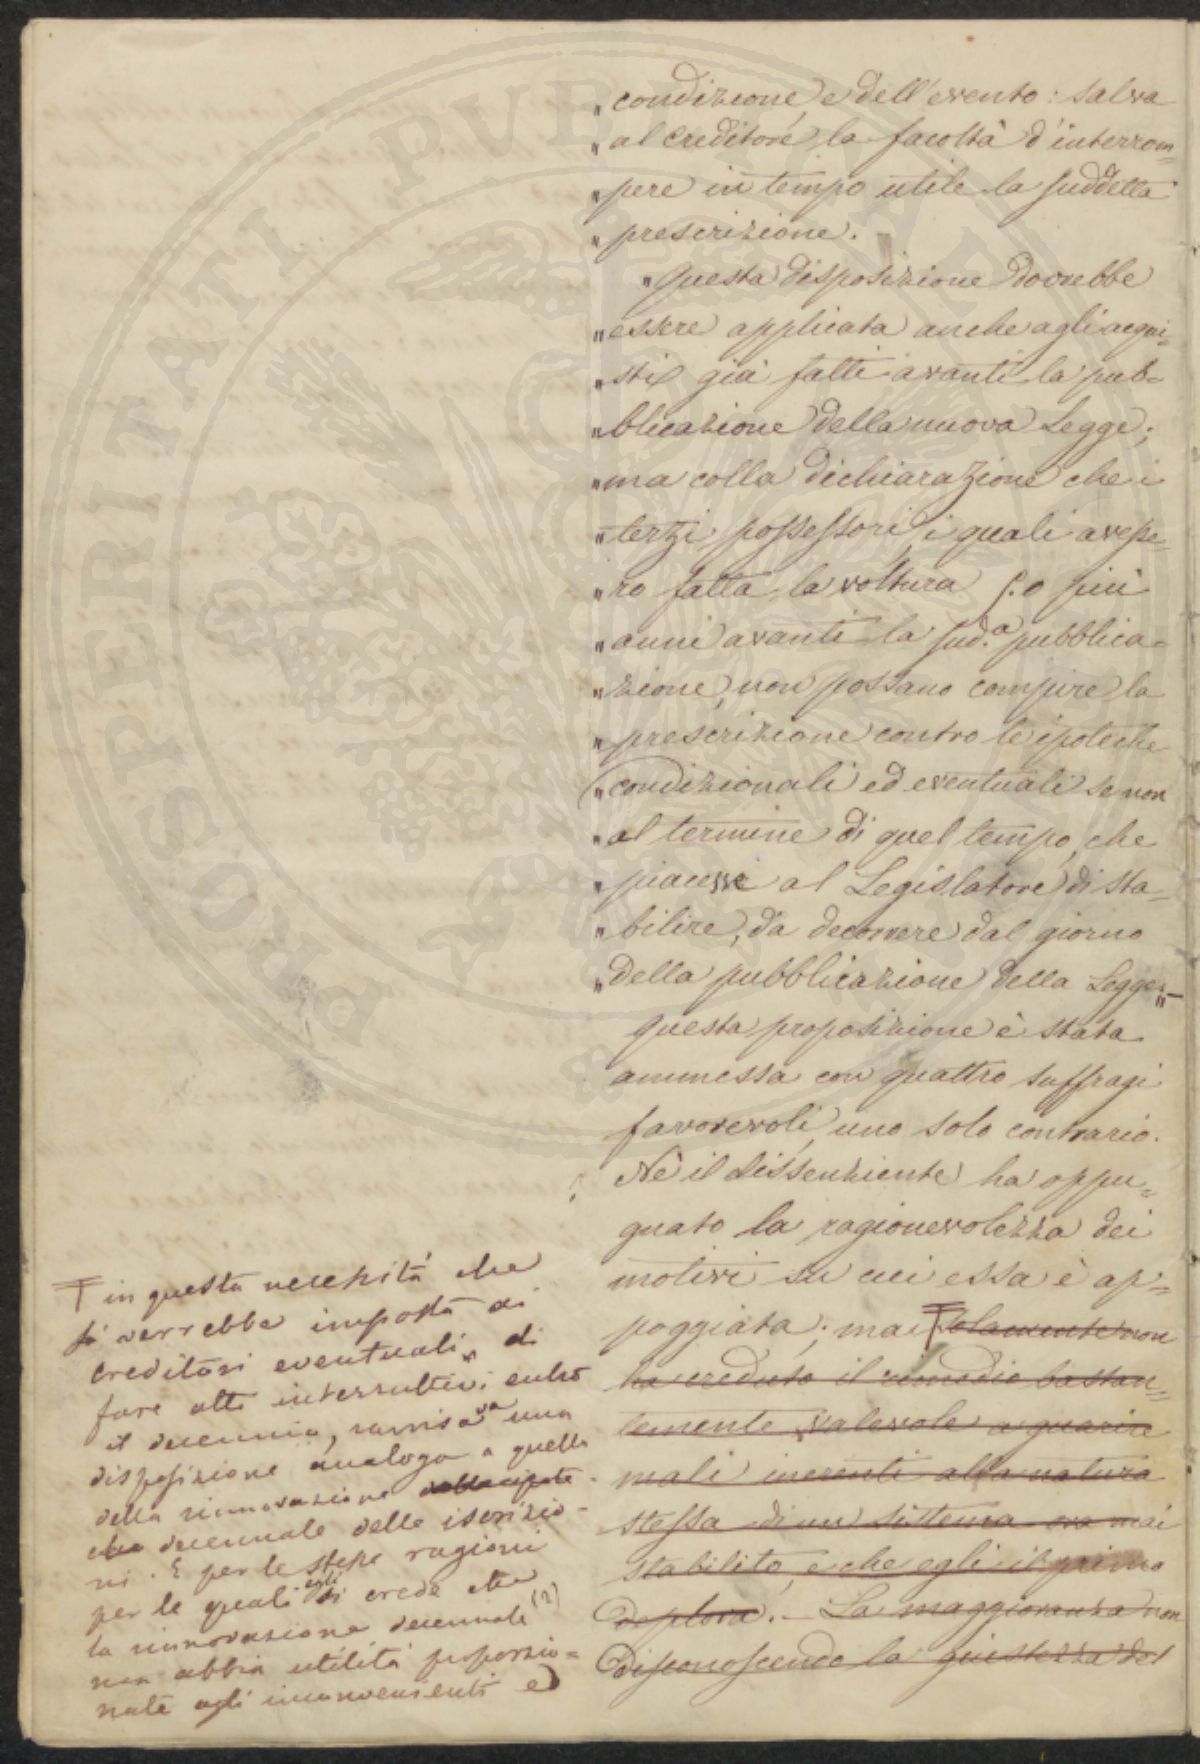 " condizione, e dell'evento: salva
" al creditore la facoltà d'interrom=
" pere in tempo utile la suddetta
" prescrizione.
" Questa disposizione dovrebbe
" essere applicata anche agli acqui=
" sti già fatti avanti la pub=
" blicazione della nuova Legge;
" ma colla dichiarazione che i
" terzi possessori, i quali avesse=
" ro fatta la voltura 5. o più
" anni avanti la sud.a pubblica=
" zione, non possano compire la
" prescrizione contro le ipoteche
" condizionali ed eventuali se non
" al termine di quel tempo, che
" piacesse al Legislatore di sta=
" bilire, da decorrere dal giorno
" della pubblicazione della Legge "—
Questa proposizione è stata
ammessa con quattro suffragi
favorevoli, uno solo contrario.
Nè il dissenziente ha oppu=
gnato la ragionevolezza dei
motivi su cui essa è ap=
poggiata; ma solamente non
ha creduto il rimedio bastan=
temente valevole a guarire
mali inerenti alla natura
stessa di un sistema ora mai
stabilito, e che egli il primo
deplora. — La maggioranza non
disconoscendo la giustezza del
in questa necessità che
si verrebbe imposta ai
creditori eventuali, di
fare atti interruttivi entro
il decennio, ravvisava una
disposizione analoga a quella
della rinnovazione
decennale delle iscrizio=
ni. E per le stesse ragioni
per le quali egli si crede che
la rinnovazione decennale (2)
non abbia utilità proporzio=
nata agli inconvenienti e
PROSPERITATI PUBLICAE